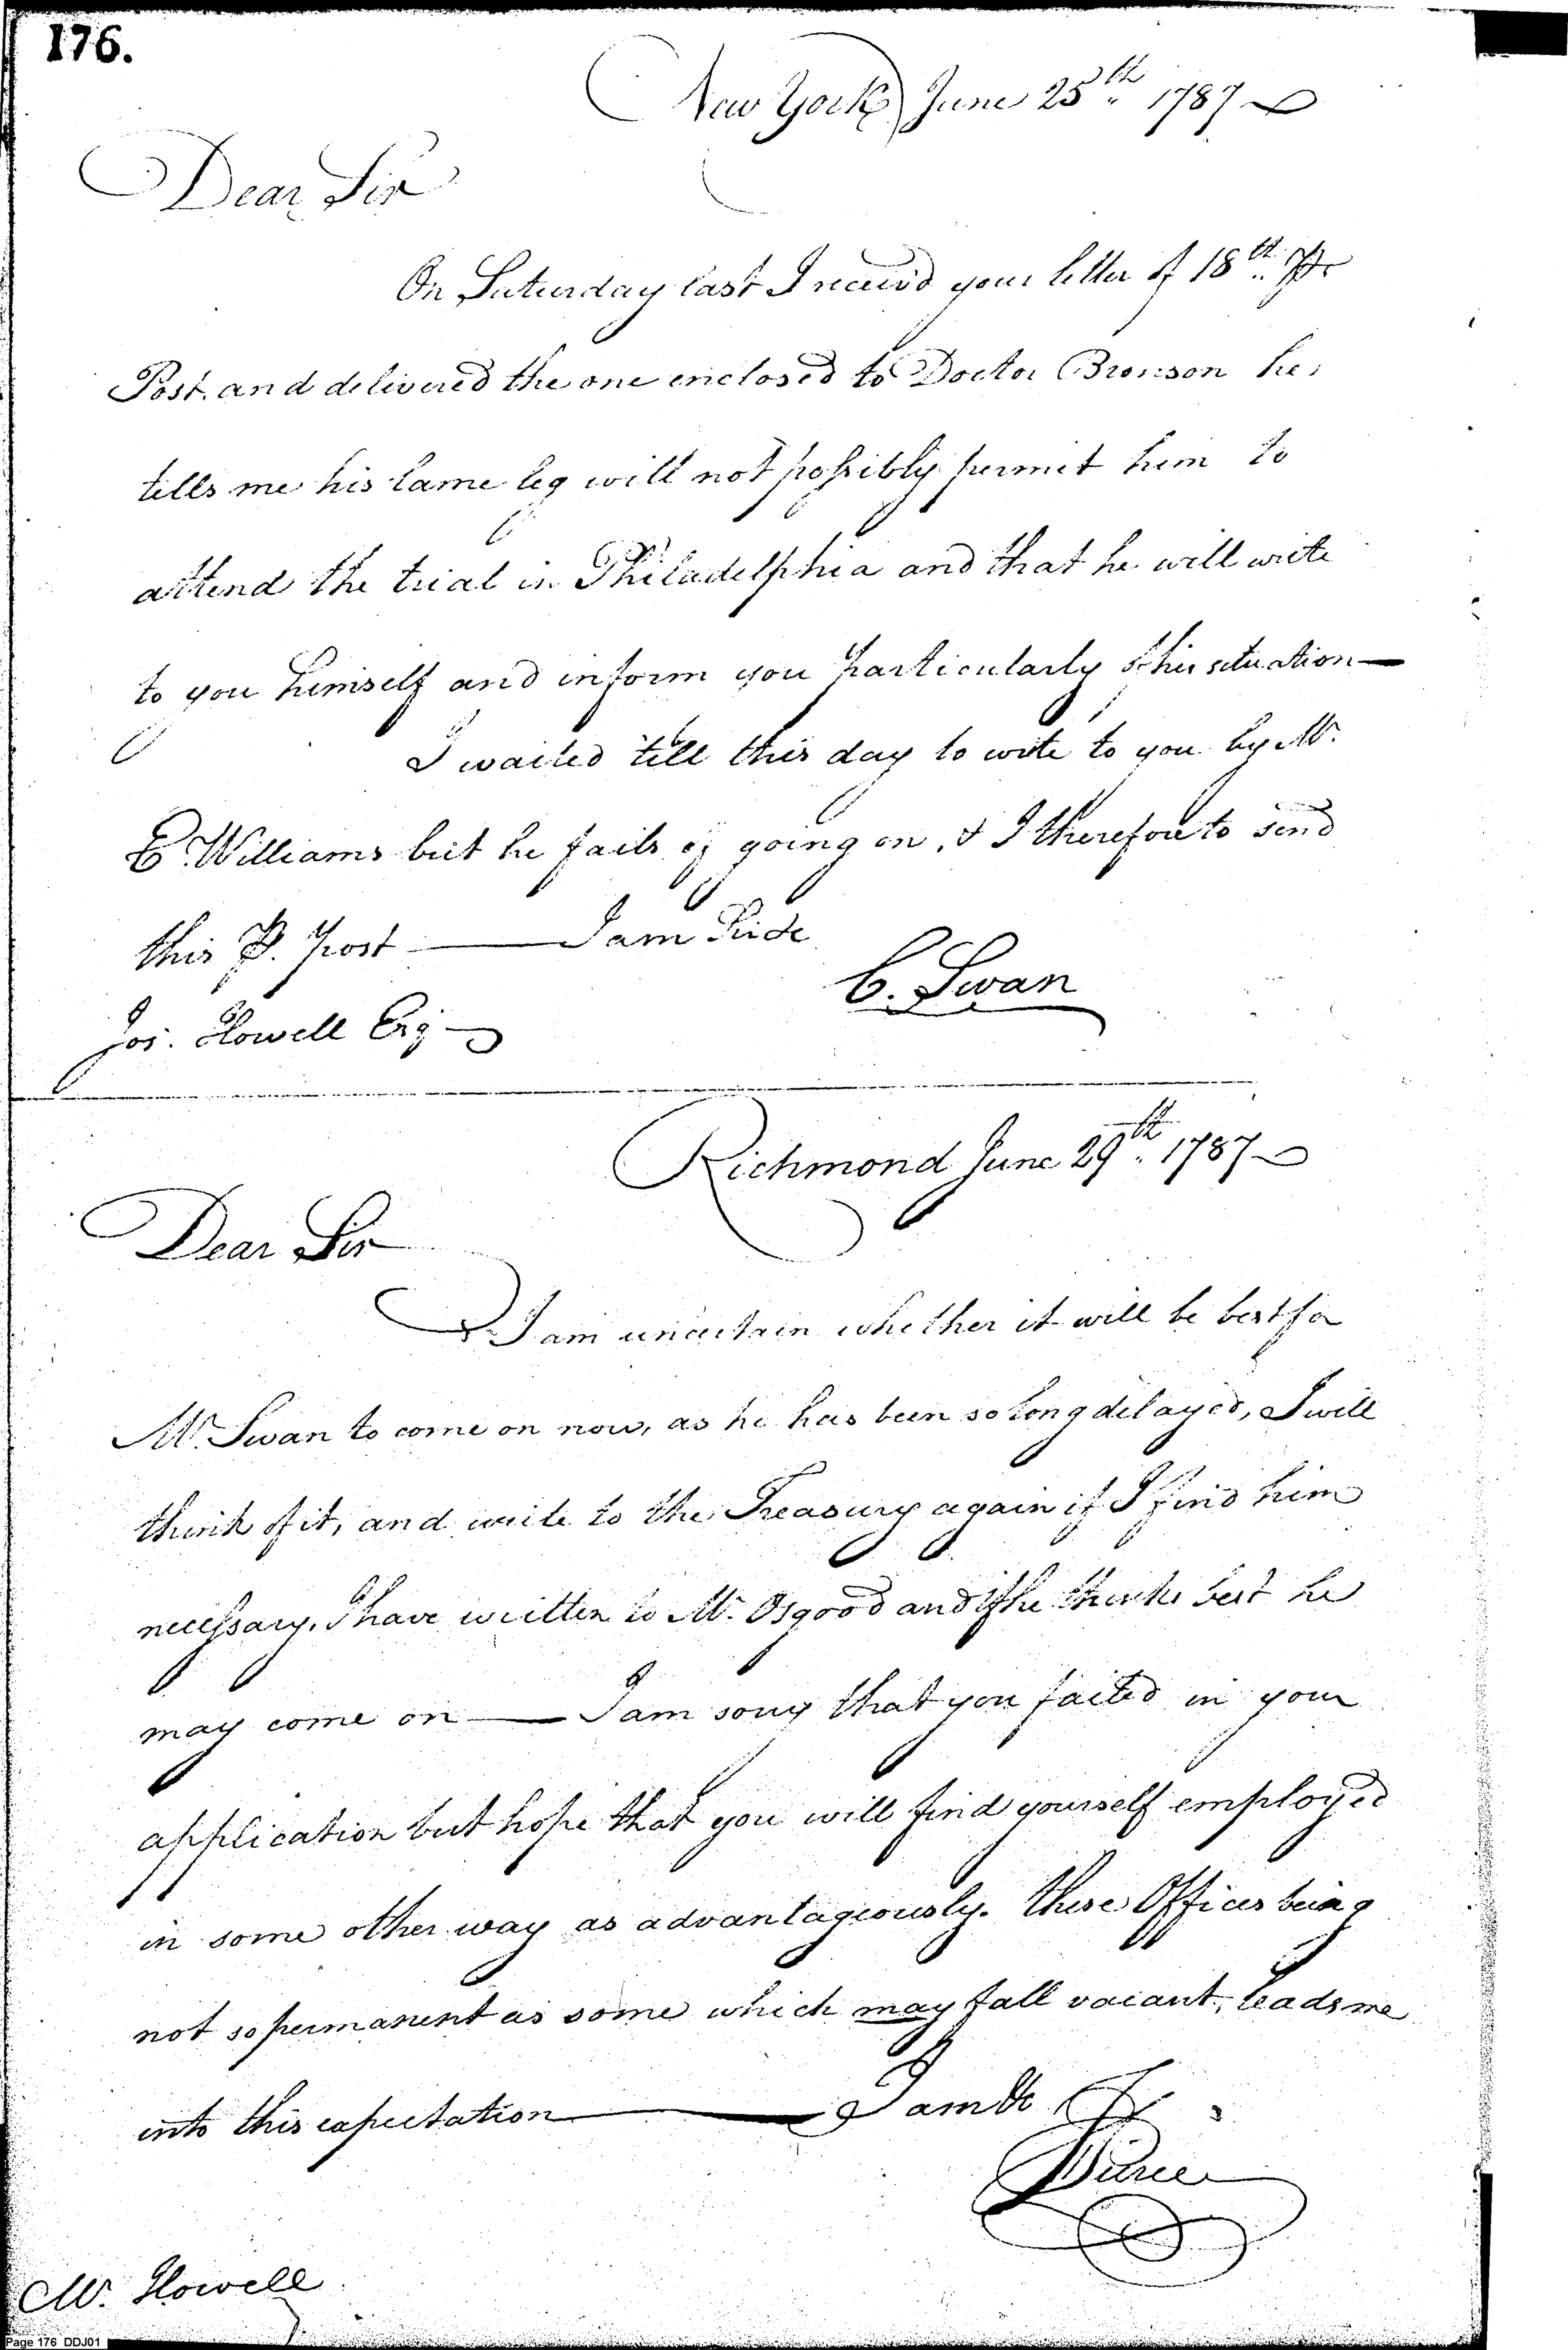 176.
New York June 25th 1787
Dear Sir
On Saturday last I receiv'd your letter of 18th. Pr
Post. and delivered the one enclosed to Doctor Bronson he
tells me his lame leg will not possibly permit him to
attend the trial in Philadelphia and that he will write
to you himself and inform you particularly of his situation—
I waited till this day to write to you by Mr.
E Williams but he fails of going on, & I therefore to send
this P. Post — I am
C. Swan
Jos. Howell Esq
Richmond June 29th. 1787
Dear Sir
I am uncertain whether it will be best for
Mr. Swan to come on now, as he has been so long delayed, I will
think of it, and write to the Treasury again if I find him
necessary. I have written to Mr. Osgood and if he thinks best he
may come on — I am sorry that you failed in your
application but hope that you will find yourself employed
in some other way as advantageously. these Offices being
not so permanent as some which may fall vacant, leads me
into this expectation — I am &c
Pierce
Mr. Howell
Page 176 DDJ01